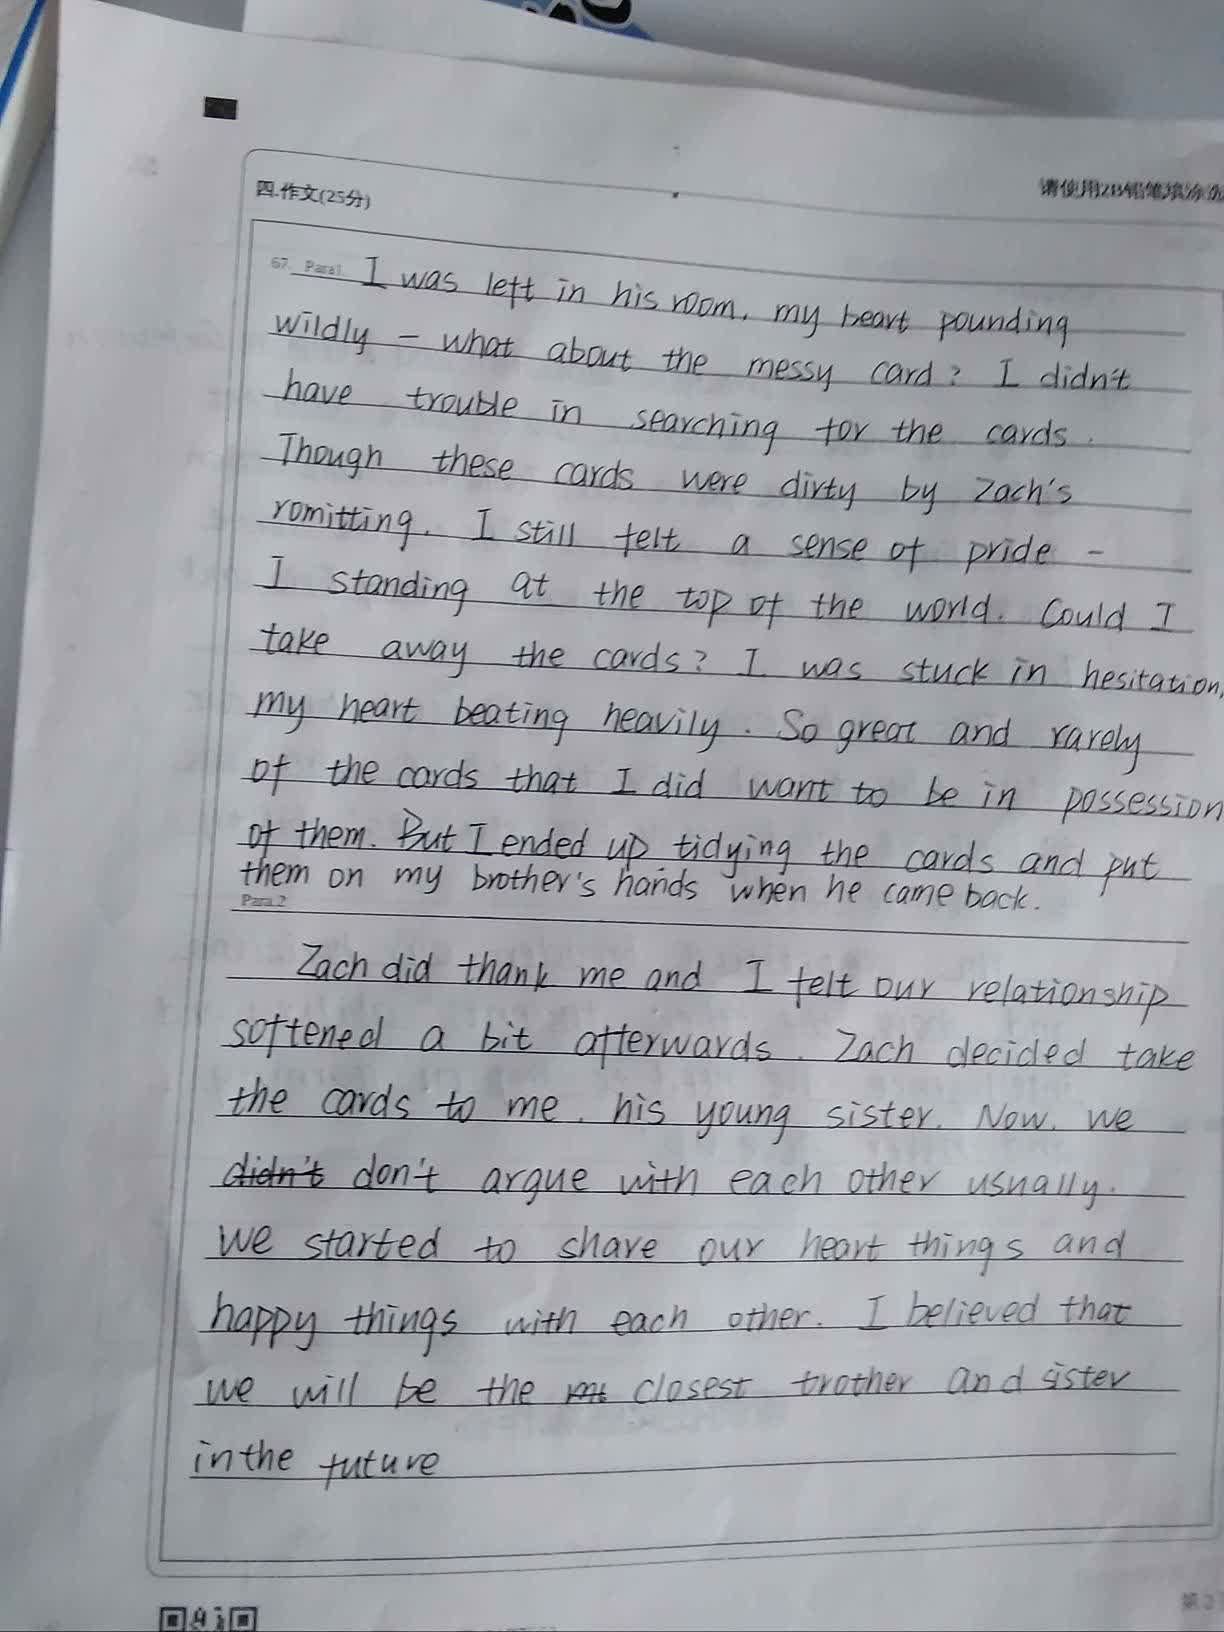 四.作文(25分)
请使用2B铅笔填涂
67. Para1. I was left in his room, my heart pounding
wildly – what about the messy card? I didn't
have trouble in searching for the cards.
Though these cards were dirty by Zach's
romitting. I still felt a sense of pride –
I standing at the top of the world. Could I
take away the cards? I was stuck in hesitation,
my heart beating heavily. So great and rarely
of the cards that I did want to be in possession
of them. But I ended up tidying the cards and put
them on my brother's hands when he came back.
Para.2
Zach did thank me and I felt our relationship
softened a bit afterwards. Zach decided take
the cards to me, his young sister. Now, we
didn't don't argue with each other usually.
We started to share our heart things and
happy things with each other. I believed that
we will be the closest trother and sister
in the future
第2